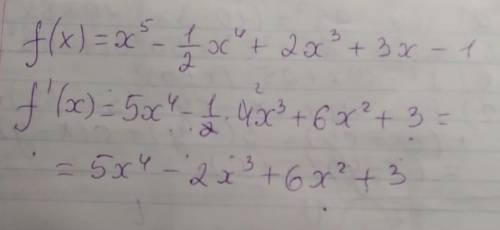 f(x) = x⁵ - 1/2 x⁴ + 2x³ + 3x - 1
f'(x) = 5x⁴ - 1/2 · 4²x³ + 6x² + 3 =
= 5x⁴ - 2x³ + 6x² + 3